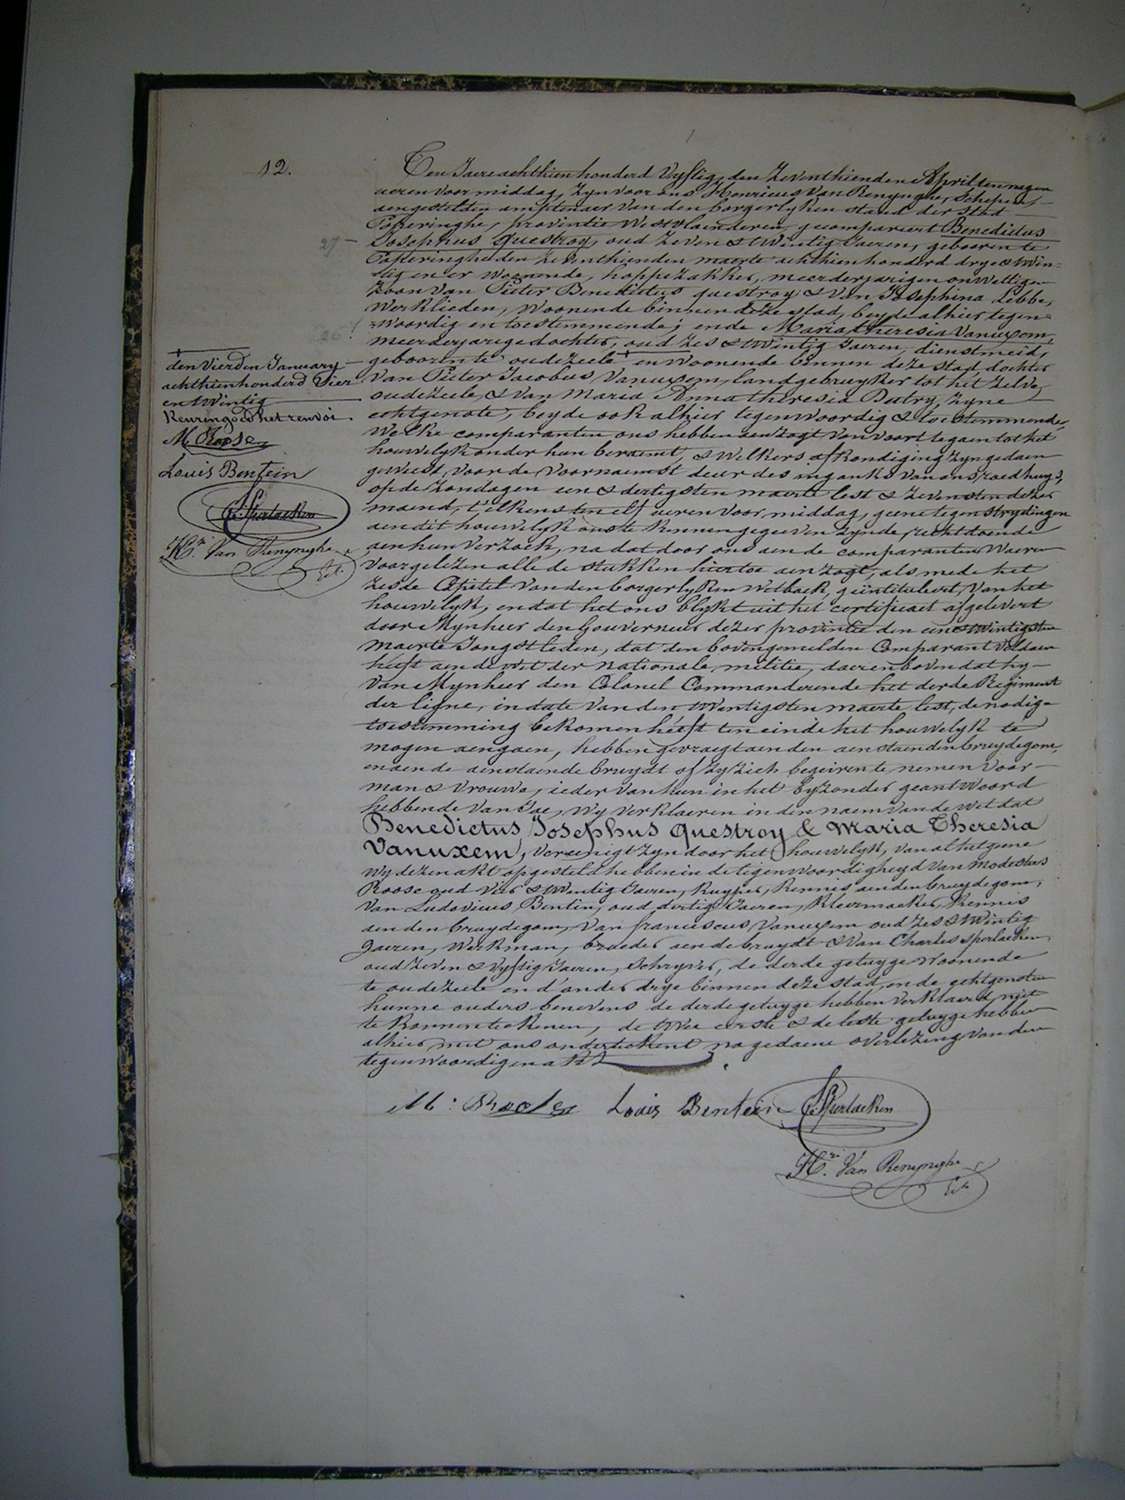 12.
Ten Jaere achthien honderd Vyftig, den Zeventhienden April ten negen
ueren voormiddag, Zyn voor ons Henricus Van Renynghe, Schepen,
aengestelden amptenaer van den borgerlyken stand der stad
Poperinghe, provintie Westvlaenderen, gecompareert Benedictus
27 - Josephus Questroy, oud Zeven & twintig Jaeren, gebooren te
Poperinghe den Zeventhienden maerte achthien honderd drye & twin=
=tig en er woonende, hoppezakker, meerderjarigen onwettigen
Zoon van Pieter Benedictus Questroy & van Josephina Debbe,
Werklieden, Woonende binnen deze stad, beyde alhier tegen=
=woordig en toestemmende; ende Maria Theresia Vanuxem,
26 meerderjarige dochter, oud Zes & twintig Jaeren, dienstmeid,
gebooren te oudezeele en woonende binnen deze stad, dochter
Van Pieter Jacobus Vanuxem, landgebruyker tot het Zelve
oudezeele, & van Maria Anna theresia Batry, Zyne
echtgenote, beyde ook alhier tegenwoordig & toestemmende,
Welke comparanten ons hebben aenzogt van voort te gaen tot het
houwelyk onder hun beraemt, & welkers afkondiging Zyn gedaen
geweest, voor de voornaemste deur des ingank's van ons raedhuys,
op de Zondagen een & dertigsten maerte lest & Zevensten dezer
maend, t'elkens ten elf ueren voormiddag, geene tegenstrydingen
aen dit houwelyk ons te kennen gegeven Zynde, recht doende
aen hun Verzoek, na dat door ons aen de comparanten Waeren
Voorgelezen alle de stukken hiertoe aenzogt, als mede het
Zesde Capitel van den borgerlyken Wetboek, geïntituleert, Van het
houwelyk, en dat het ons blykt uit het certificaet afgelevert
door Mynheer den Gouverneur dezer provintie den een & twintigsten
Maerte Jongstleden, dat den bovengemelden Comparant Voldaen
heeft aen de wet der nationale militie, daerenboven dat hy
Van Mynheer den Colonel Commanderende het derde Regiment
der ligne, in date van den twintigsten maerte lest, de nodige
toestemming bekomen heeft ten einde het houwelyk te
mogen aengaen, hebben gevraegt aen den aenstaenden bruydegom,
en aen de aenstaende bruydt of Zy Zich begeiren te nemen Voor
man & Vrouwe, ieder van hun in het byzonder geantwoord
hebbende Van Jae, Wy Verklaeren in den naem van de Wet dat
Benedictus Josephus Questroy & Maria Theresia
Vanuxem, Vereenigt Zyn door het houwelyk, van al het geene
Wy dezen akt opgesteld hebben in de tegenwoordigheyd van Modestus
Roose oud Vier & twintig Jaeren, Kuyper, Kennis aen den bruydegom,
Van Ludovicus Bentin, oud dertig Jaeren, Kleermaeker, Kennis
aen den bruydegom, Van franciscus Vanuxem oud Zes & twintig
Jaeren, Werkman, broeder aen de bruydt & Van Charles Sperlaeken,
oud Zeven & Vyftig Jaeren, Schryver, de derde getuyge Woonende
te oudezeele en d'ander drye binnen deze stad, en de echtgenoten
hunne ouders benevens de derde getuyge hebben Verklaerd niet
te Konnen teekenen, de twee erste & de leste getuyge hebben
alhier met ons onderteekent na gedaene overlezing van den
tegenwoordigen akt
den Vierden January
achthien honderd Vier
en twintig
Keuren goed het renvoi
M Roose
Louis Bentein
C. Sperlaeken
Hri Van Renynghe
M: Roose Louis Bentein C. Sperlaeken
Hri Van Renynghe